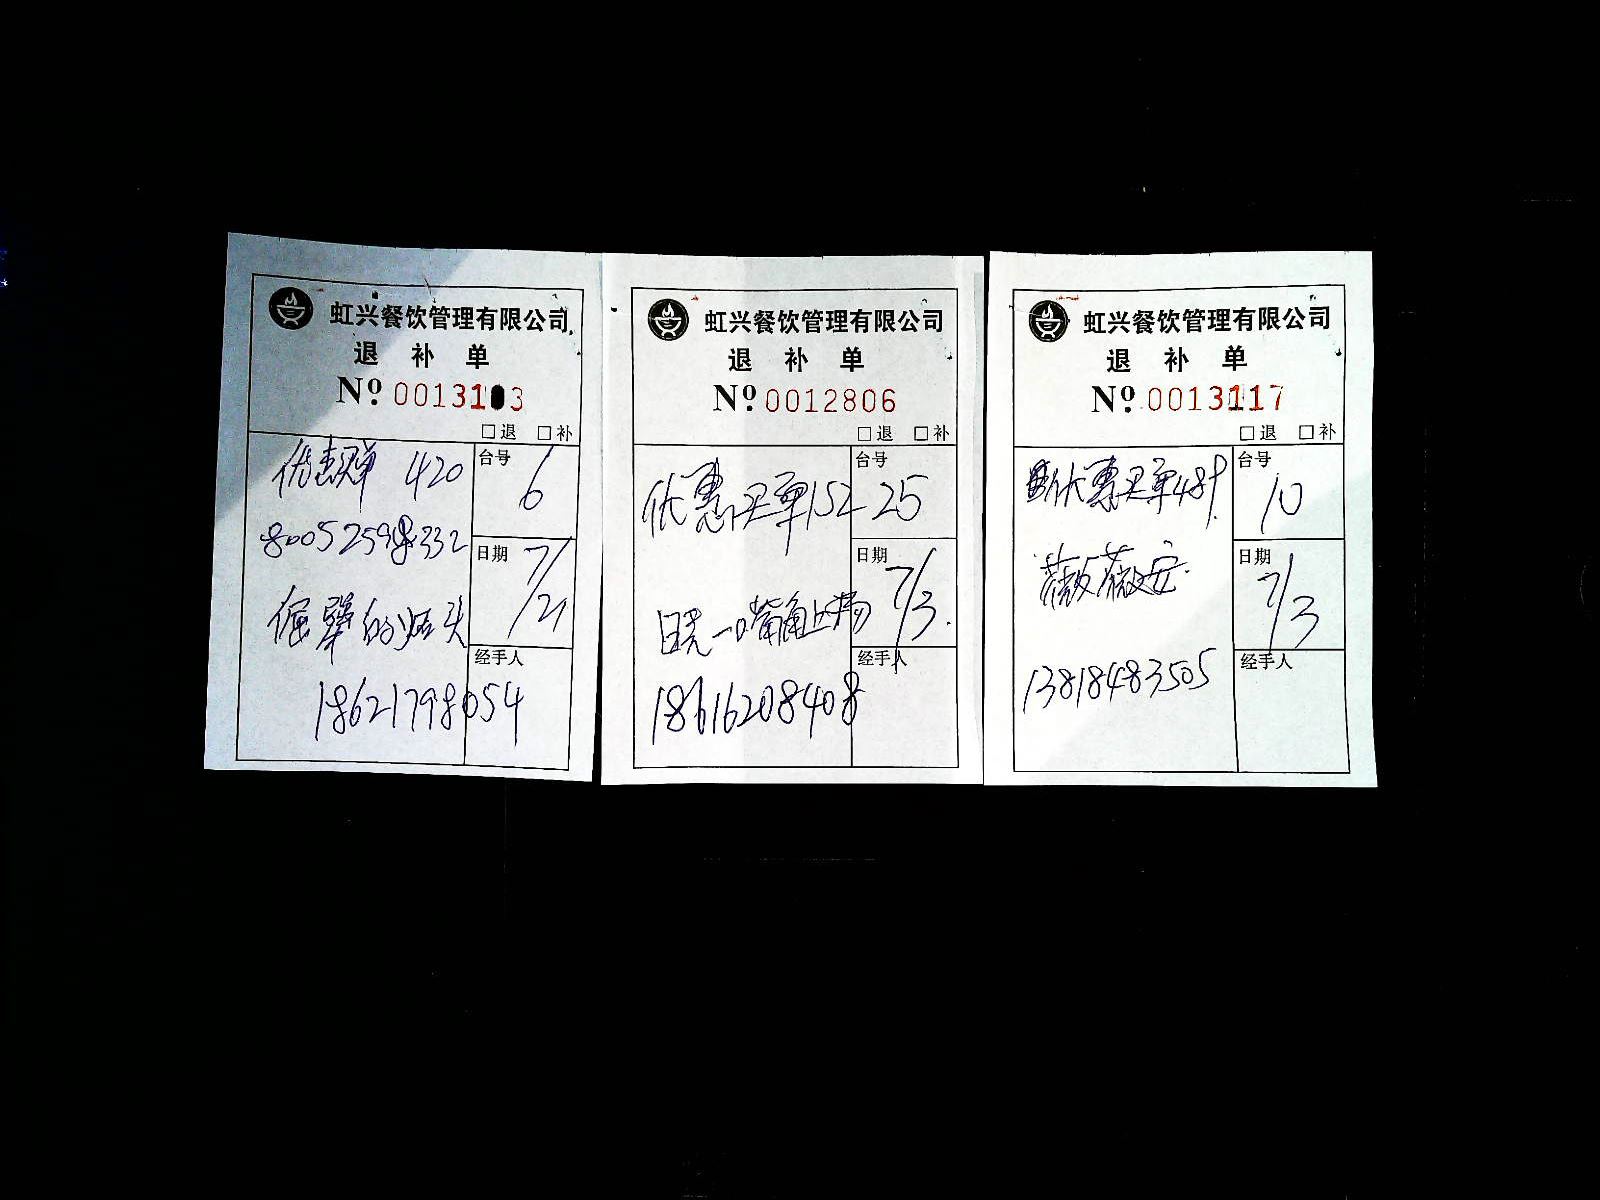 虹兴餐饮管理有限公司
退 补 单
Nº 0013103
□退 □补
优惠买单 420
台号
6
80052598332
日期
7/21
倔犟的
经手人
18621798054
虹兴餐饮管理有限公司
退 补 单
Nº 0012806
□退 □补
优惠买单152
台号
25
日期
7/3.
一口嘴角上扬
经手人
18616208408
虹兴餐饮管理有限公司
退 补 单
Nº 0013117
□退 □补
优惠买单489
台号
10
薇薇安
日期
7/3
经手人
13818483505